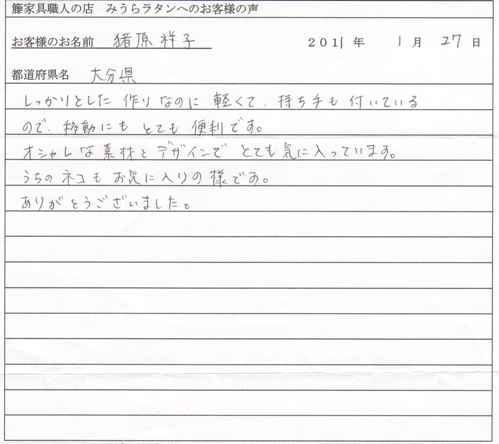 籐家具職人の店 みうらラタンへのお客様の声
お客様のお名前 猪原祥子 2011年 1月 27日
都道府県名 大分県
しっかりとした 作りなのに 軽くて、持ち手も 付いている
ので、移動にも とても 便利です。
オシャレな素材とデザインで とても気に入っています。
うちの ネコも お気に入りの 様です。
ありがとうございました。